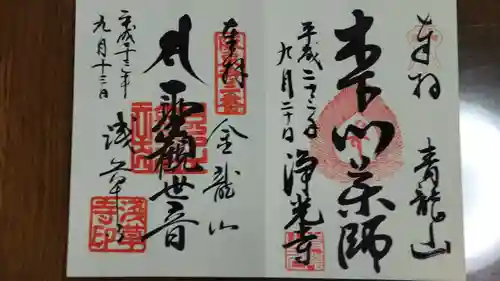 奉拝
青龍山
木下川薬師
平成二十三年
九月二十日
浄光寺
奉拝
金龍山
聖観世音
浅草寺
平成二十三年
九月十三日
浅草
寺印